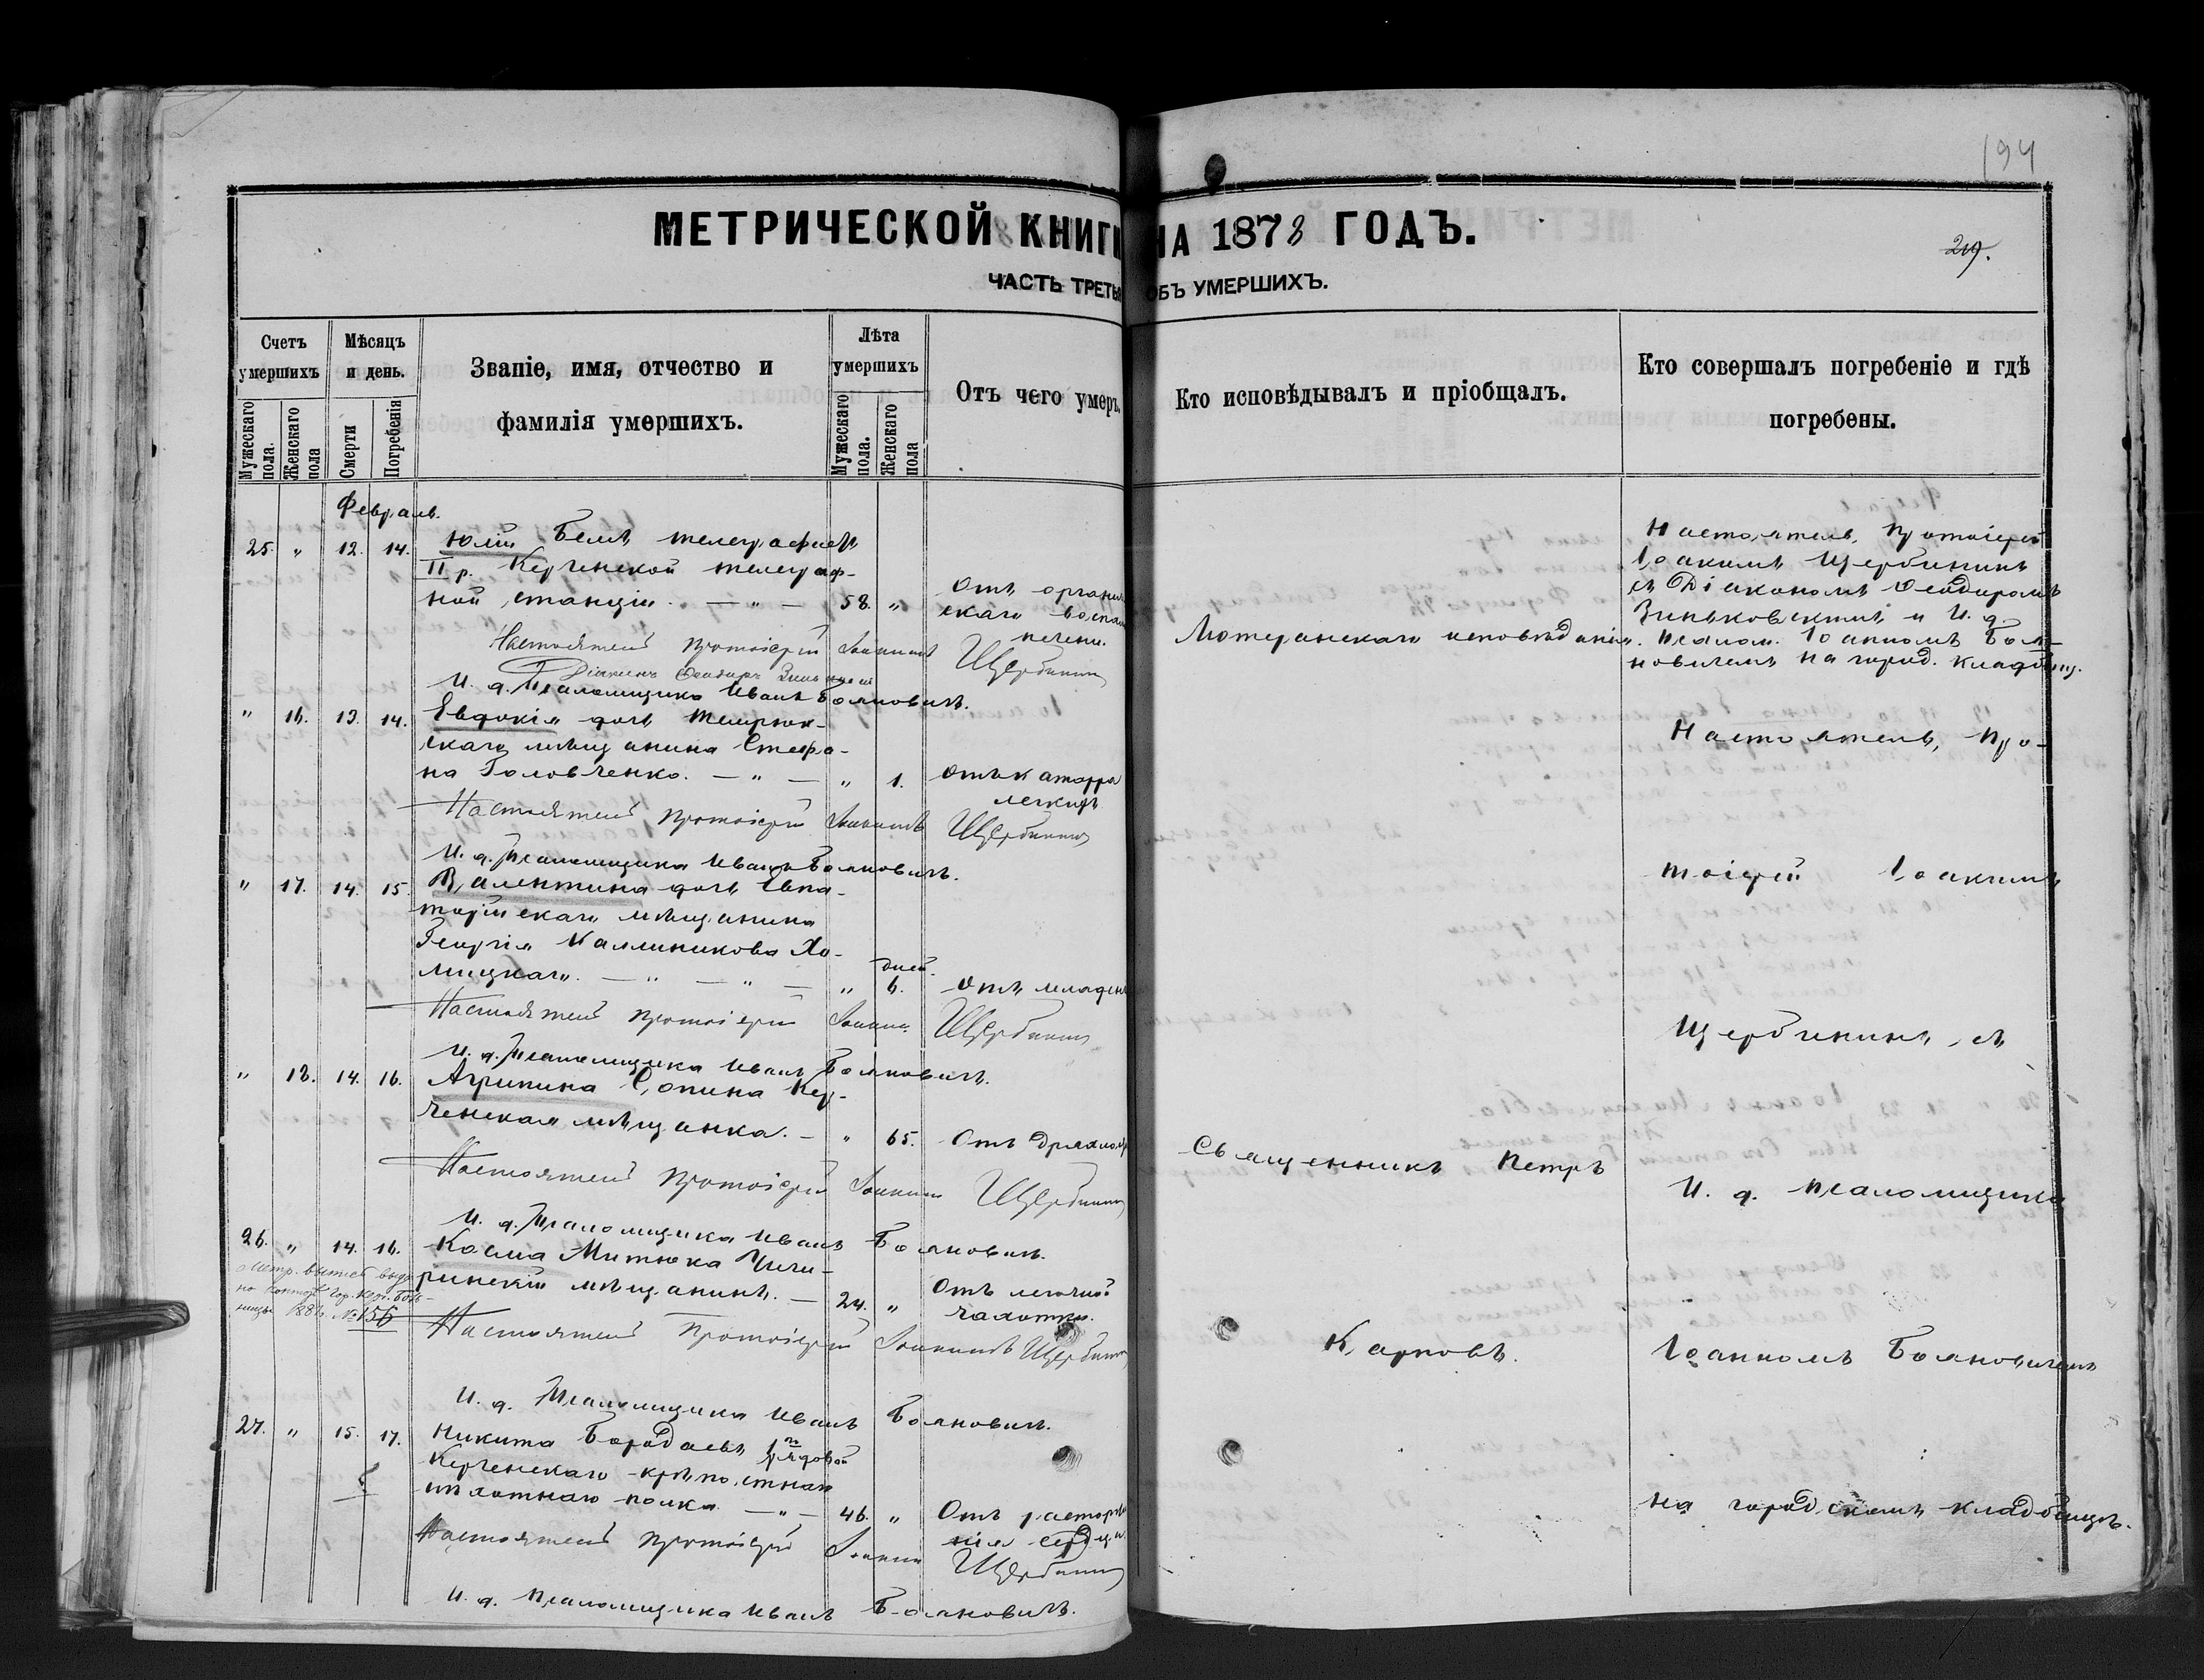 194
МЕТРИЧЕСКОЙ КНИГИ НА 1878 ГОДЪ.
219.
ЧАСТЬ ТРЕТЬЯ ОБЪ УМЕРШИХЪ.
Счетъ умершихъ
Мѣсяцъ и день.
Званіе, имя, отчество и фамилія умершихъ.
Лѣта умершихъ
Отъ чего умеръ.
Кто исповѣдывалъ и пріобщалъ.
Кто совершалъ погребеніе и гдѣ погребены.
Мужескаго пола.
Женскаго пола
Смерти
Погребенія
Мужескаго пола.
Женскаго пола
Февраль.
25. " 12. 14. Юлій Бемъ телеграфистъ
II р. Керченской телеграф-
ной станціи. — " — 58. " Отъ органи
скаго воспал
печени.
Лютеранскаго исповѣданія.
Настоятель, Протоіерей
Іоакимъ Щербининъ
съ Діакономъ Ѳеодоромъ
Зиньковскимъ и И. д.
псалом. Іоанномъ Боя-
новичемъ на город. кладбищ.
Настоятель Протоіерей Іоакимъ Щербининъ
Діаконъ Ѳеодоръ
И. д. Псаломщика Иванъ Бояновичъ.
" 16. 13. 14. Евдокія дочь Темрюк-
скаго мѣщанина Стефа-
на Головченко. — " — " 1. Отъ катарра
легкихъ
Настоятель Протоіерей Іоакимъ Щербининъ
И. д. Псаломщика Иванъ Бояновичъ.
" 17. 14. 15. Валентина дочь Евпа-
торійскаго мѣщанина
Георгія Каллиникова Хо-
мицкаго. — " — " — " дней. 6. Отъ младен
Настоятель Протоіерей Іоакимъ Щербининъ
И. д. Псаломщика Иванъ Бояновичъ.
" 18. 14. 16. Агрипина Сопина Кер-
ченская мѣщанка. — " 65. Отъ дряхлос
Настоятель Протоіерей Іоакимъ Щербининъ
И. д. Псаломщика Иванъ Бояновичъ.
26. " 14. 16. Косма Митюка Чиги-
ринскій мѣщанинъ. — 24. " Отъ легочной
чахотки.
№ 156
Настоятель Протоіерей Іоакимъ Щербининъ
И. д. Псаломщика Иванъ Бояновичъ.
27. " 15. 17. Никита Бородаевъ рядовой
Керченскаго крѣпостнаго
пѣхотнаго полка. — " — 46. " Отъ расторже
нія сердца
Настоятель Протоіерей Іоакимъ Щербининъ
И. д. Псаломщика Иванъ Бояновичъ.
Священникъ Петръ
Карповъ.
Настоятель, Про-
тоіерей Іоакимъ
Щербининъ, съ
И. д. псаломщика
Іоанномъ Бояновичемъ
на городскомъ кладбищѣ.